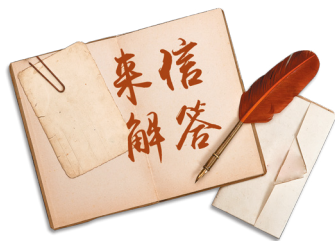 来信
解答